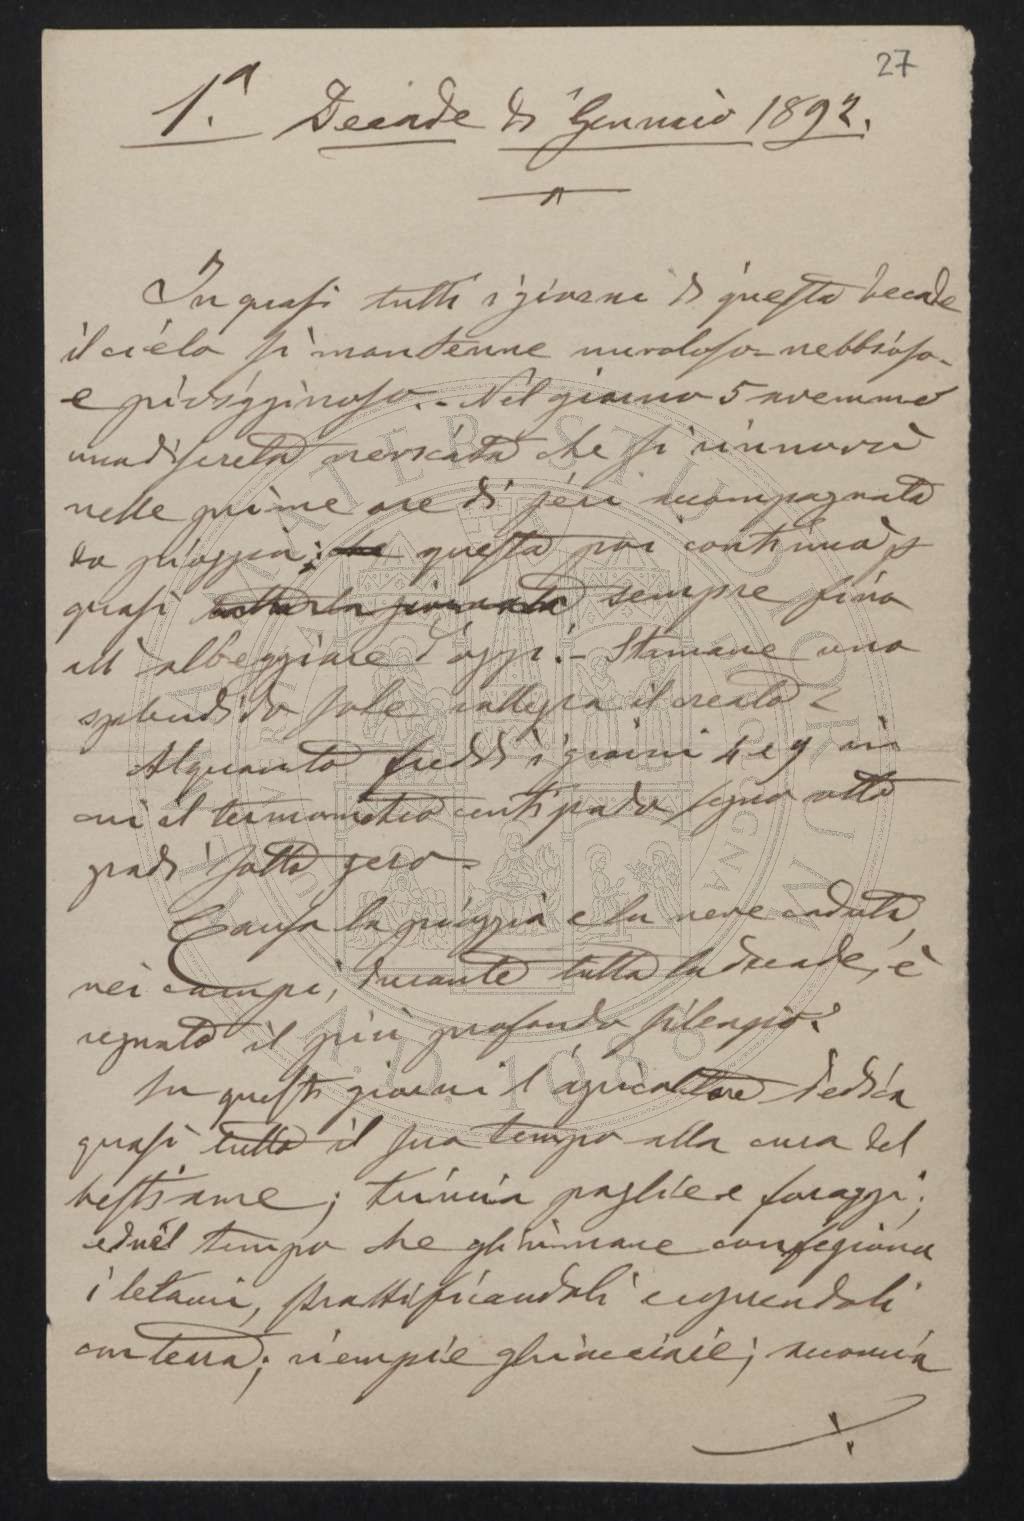 27
1.a Decade di Gennaio 1892.
In quasi tutti i giorni di questa decade
il cielo si mantenne nuvoloso - nebbioso -
e piovigginoso. - Nel giorno 5 avemmo
una discreta nevicata che si rinnovò
nelle prime ore di jeri accompagnata
da pioggia; questa poi continuò
quasi tutta la giornata sempre fino
all'albeggiare d'oggi. - Stamane uno
splendido sole rallegra il creato
Alquanto freddi i giorni 4 e 9 in
cui il termometro centigrado segnò otto
gradi sotto zero -
Causa la pioggia e la neve caduta,
nei campi, durante tutta la decade, è
regnato il più profondo silenzio.
In questi giorni l'agricoltore dedica
quasi tutto il suo tempo alla cura del
bestiame; trincia paglie e foraggi;
ed nel tempo che gli rimane confeziona
i letami, stratificandoli e coprendoli
con terra; riempie ghiacciaie;
UNIVERSITARIO
A.D. 1088